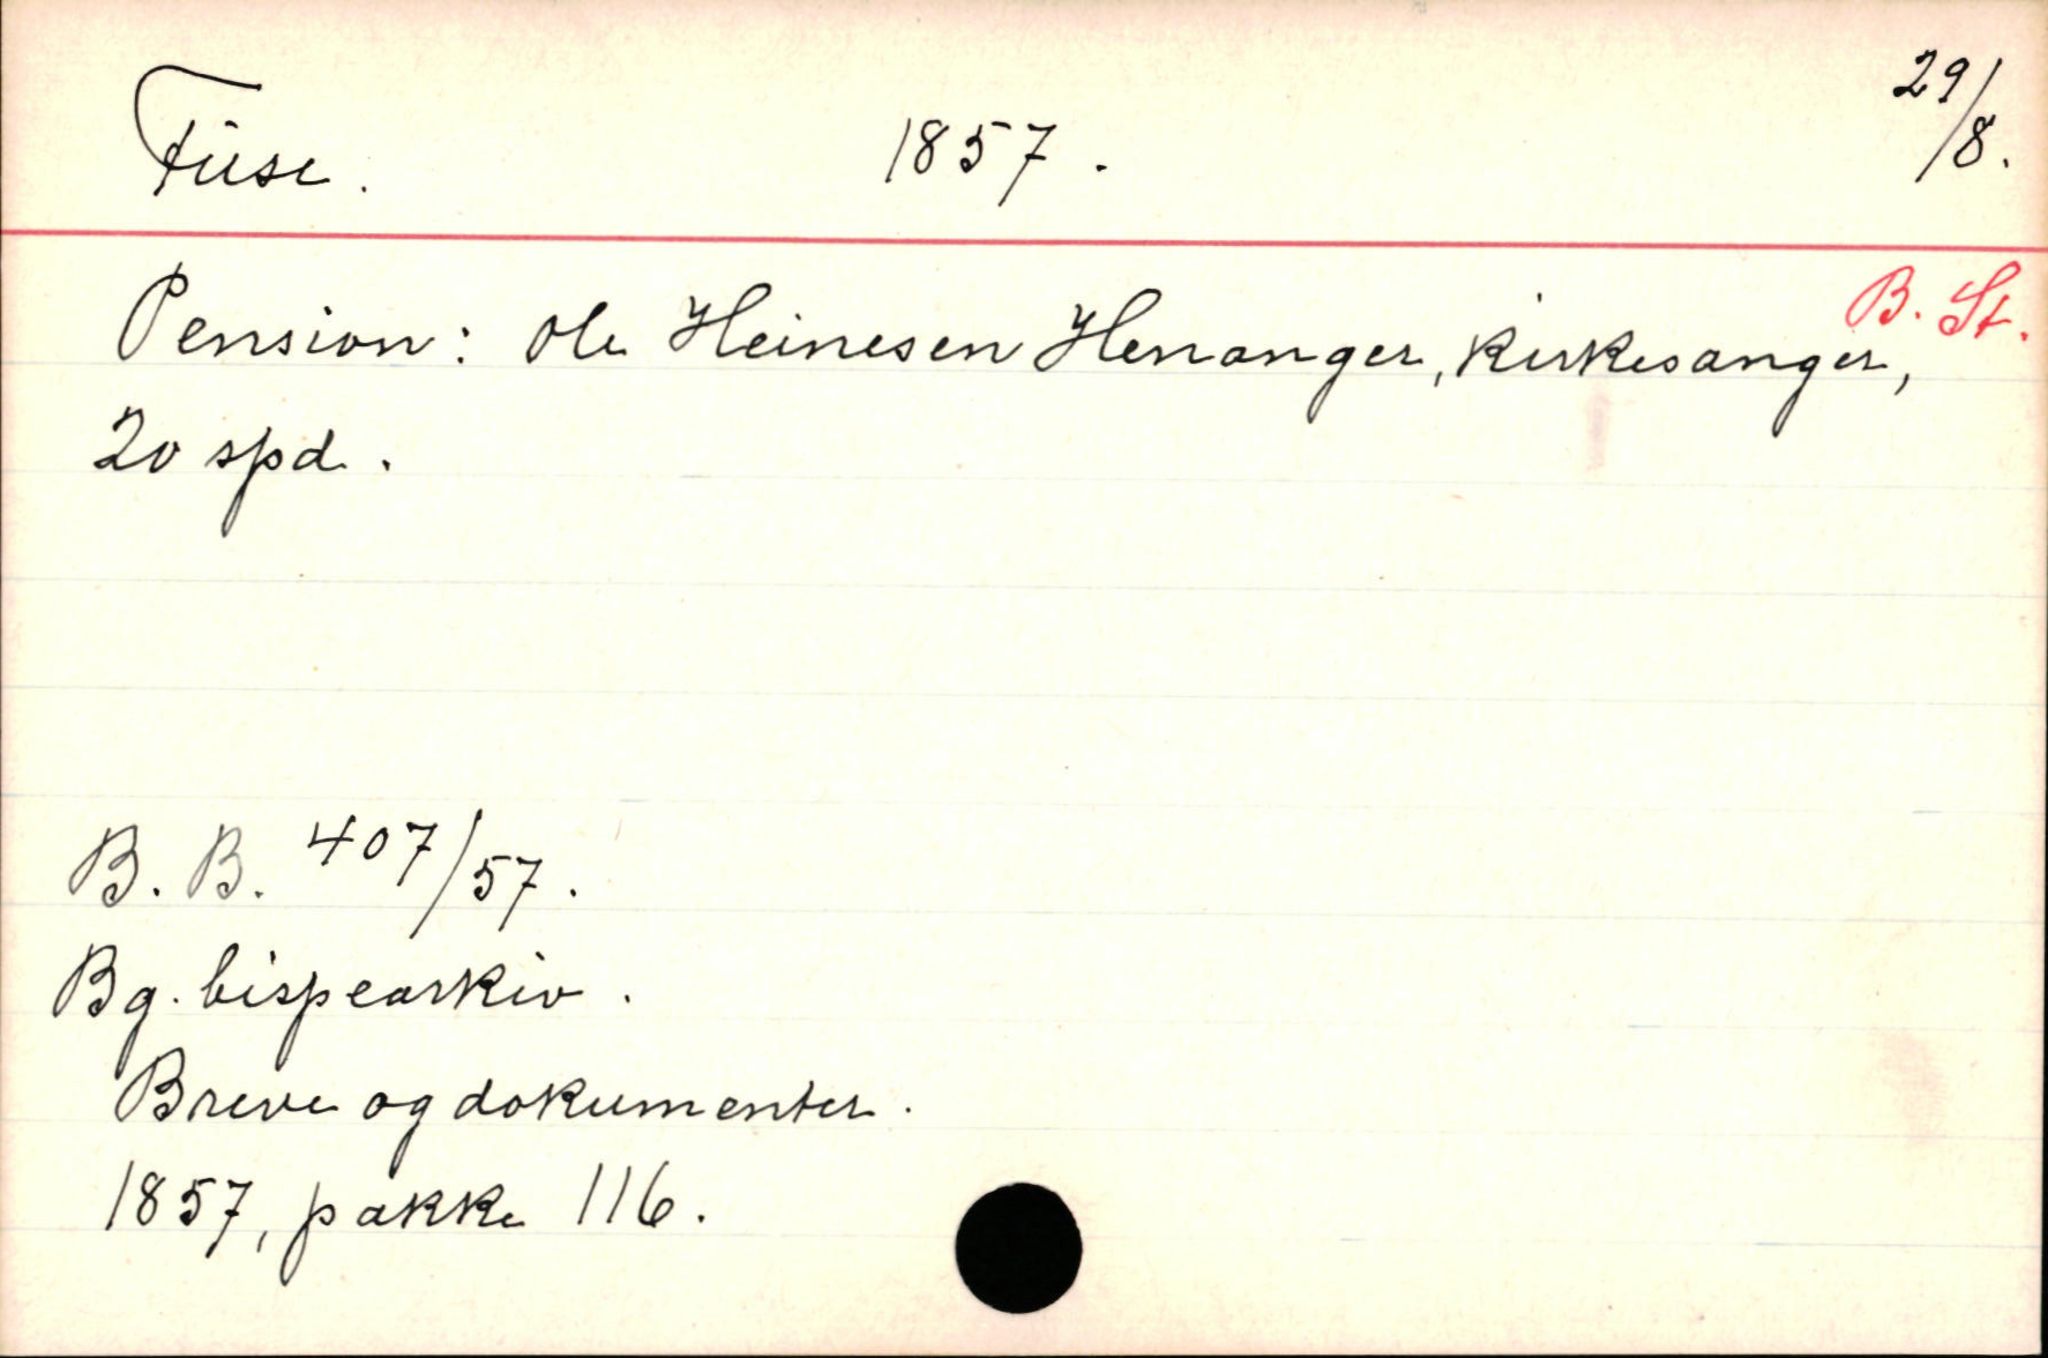 Fuse. 1857. 29/8.
B. St.
Pension: Ole Heinesen Henanger, kirkesanger,
20 spd.
B. B. 407/57.
Bg. bispearkiv.
Breve og dokumenter.
1857, pakke 116.